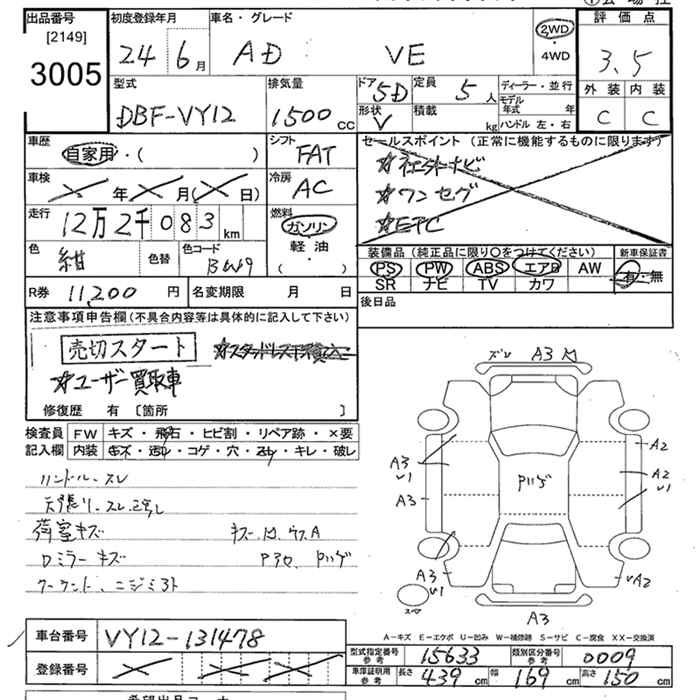 出品番号 初度登録年月 車名・グレード 評価点
[2149]
3005
24 6月 AD VE 2WD・4WD 3.5
型式 排気量 ドア 5D 定員 5人 ディーラー・並行 外装 内装
DBF-VY12 1500cc 形状 V 積載 kg モデル年式 年 C C
ハンドル 左・右
車歴 シフト セールスポイント (正常に機能するものに限ります)
自家用・( ) FAT
☆社外ナビ
車検 年 月 ( 日) 冷房 AC
☆ワンセグ
走行 12万2千083km 燃料 ガソリン
☆ETC
軽油・( )
色 紺 色替 色コード BW9
装備品 (純正品に限り○をつけてください) 新車保証書
PS PW ABS エアB AW 有・無
SR ナビ TV カワ
R券 11,200円 名変期限 月 日 後日品
注意事項申告欄(不具合内容等は具体的に記入して下さい)
売切スタート
☆ユーザー買取車
修復歴 有 [箇所 ]
検査員 FW キズ・飛石・ヒビ割・リペア跡・×要
記入欄 内装 キズ・汚れ・コゲ・穴・スレ・キレ・破レ
ハンドル・スレ
天張り・スレ
荷室キズ
Dミラーキズ
A3
A3
U1
A3
A3
U1
A2
A2
U1
A2
A3
A-キズ E-エクボ U-凹み W-補修跡 S-サビ C-腐食 XX-交換済
車台番号 VY12-131478
型式指定番号 参考 15633 類別区分番号 参考 0009
登録番号
車庫証明用 参考 長さ 439cm 幅 169cm 高さ 150cm